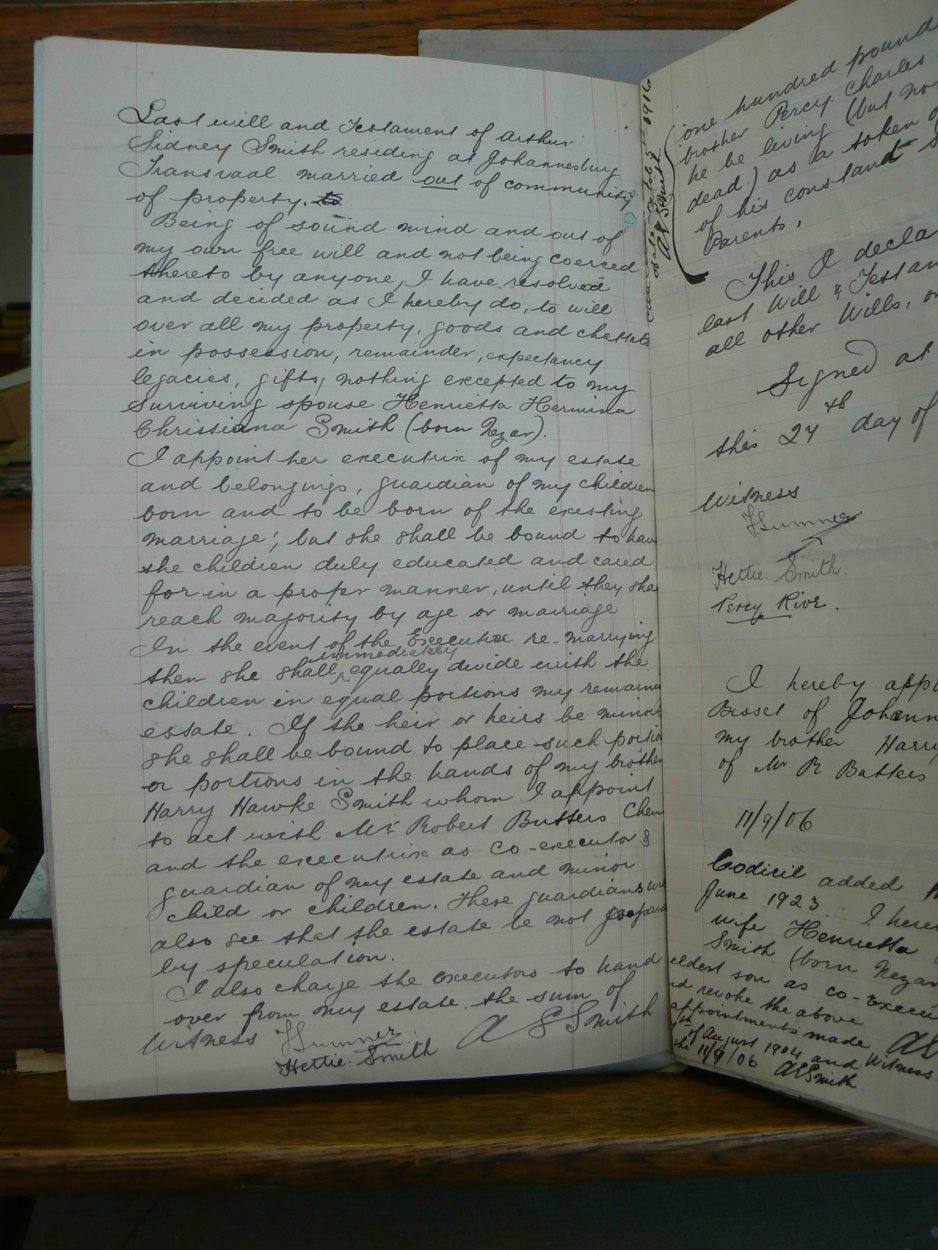 Last will and Testament of Arthur
Sidney Smith residing at Johannesburg
Transvaal married out of community
of property. to
Being of sound mind and out of
my own free will and not being coerced
thereto by anyone, I have resolved
and decided as I hereby do, to will
over all my property, goods and chattels
in possession, remainder, expectancy
legacies, gifts, nothing excepted to my
Surviving spouse Henrietta Hermina
Christiana Smith (born Nezar).
I appoint her executrix of my estate
and belongings, guardian of my children
born and to be born of the existing
marriage; but she shall be bound to have
the children duly educated and cared
for in a proper manner, until they sha
reach majority by age or marriage
In the event of the Executrix re-marrying
immediately
then she shall equally divide with the
children in equal portions my remaini
estate. If the heir or heirs be minors
she shall be bound to place such portio
or portions in the hands of my brother
Harry Hawke Smith whom I appoint
to act with Mr Robert Butters Chem
and the executrix as co-executor &
guardian of my estate and minor
child or children. These guardians wi
also see that the estate be not jeopard
by speculation.
I also charge the executors to hand
over from my estate the sum of
Witness F Sumner A S Smith
Hettie Smith
A S Smith
one hundred pound
brother Percy Charles
he be living (but no
dead.) as a token o
of his constant
Parents.
This I decla
last Will & Testam
all other Wills, or
Signed at
this 24th day of
Witness
F Sumner
Hettie. Smith.
Percy Rive.
I hereby app
Bisset of Johann
my brother Harry
of Mr R Butters
11/9/06
Codicil added
June 1923 I here
wife Henrietta
Smith (born Nezar
eldest son as co-execu
nd revoke the above
appointments made
of August 1904 and Witness
the 11/9/06 A S Smith